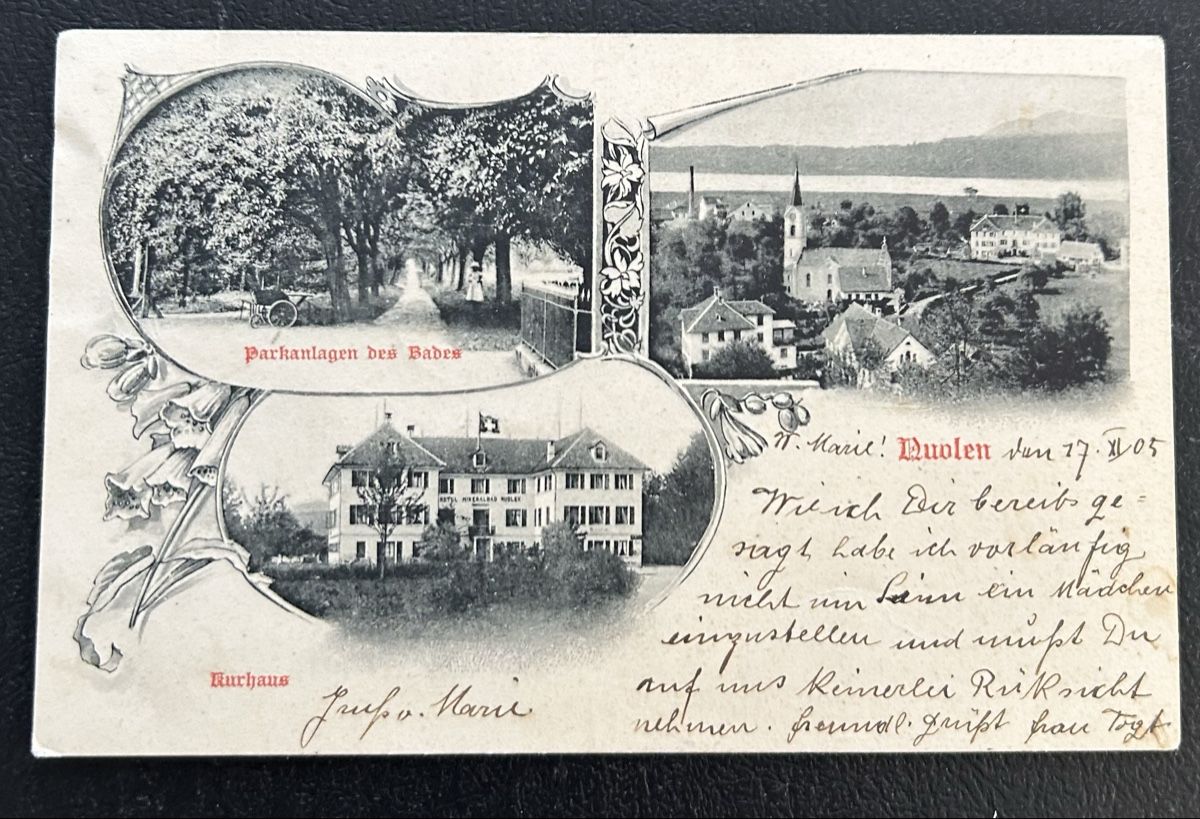 Parkanlagen des Bades
HOTEL MINERALBAD NUOLEN
Kurhaus
Nuolen
Marie! den 17. XI 05
Wie ich Dir bereibs ge=
sagt, habe ich vorläufig
nicht im Sinn ein Mädchen
einzustellen und mußt Du
auf uns keinerlei Rüksicht
nehmen. freundl. grüßt frau Vogt
Gruß v. Marie